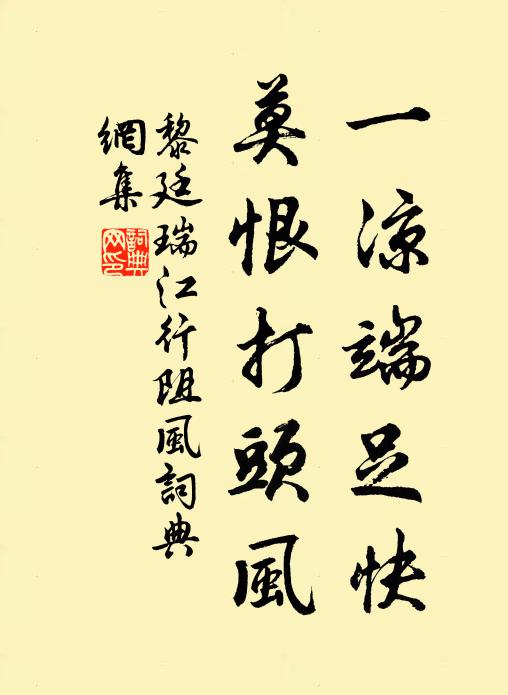 一涼端足快
莫恨打頭風
黎廷瑞江行阻風詞典
網集
詞典
网印